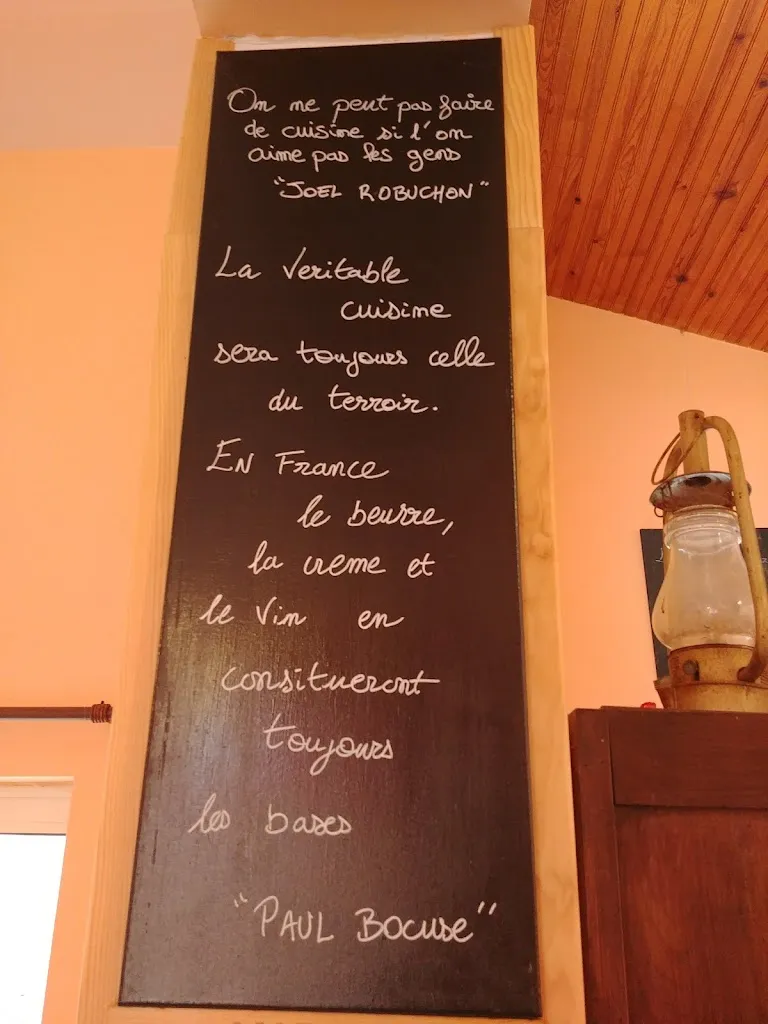 On ne peut pas faire
de cuisine si l'on
aime pas les gens
"JOEL ROBUCHON"
La Veritable
cuisine
sera toujours celle
du terroir.
EN France
le beurre,
la creme et
le Vin en
consitueront
toujours
les bases
"PAUL BOCUSE"